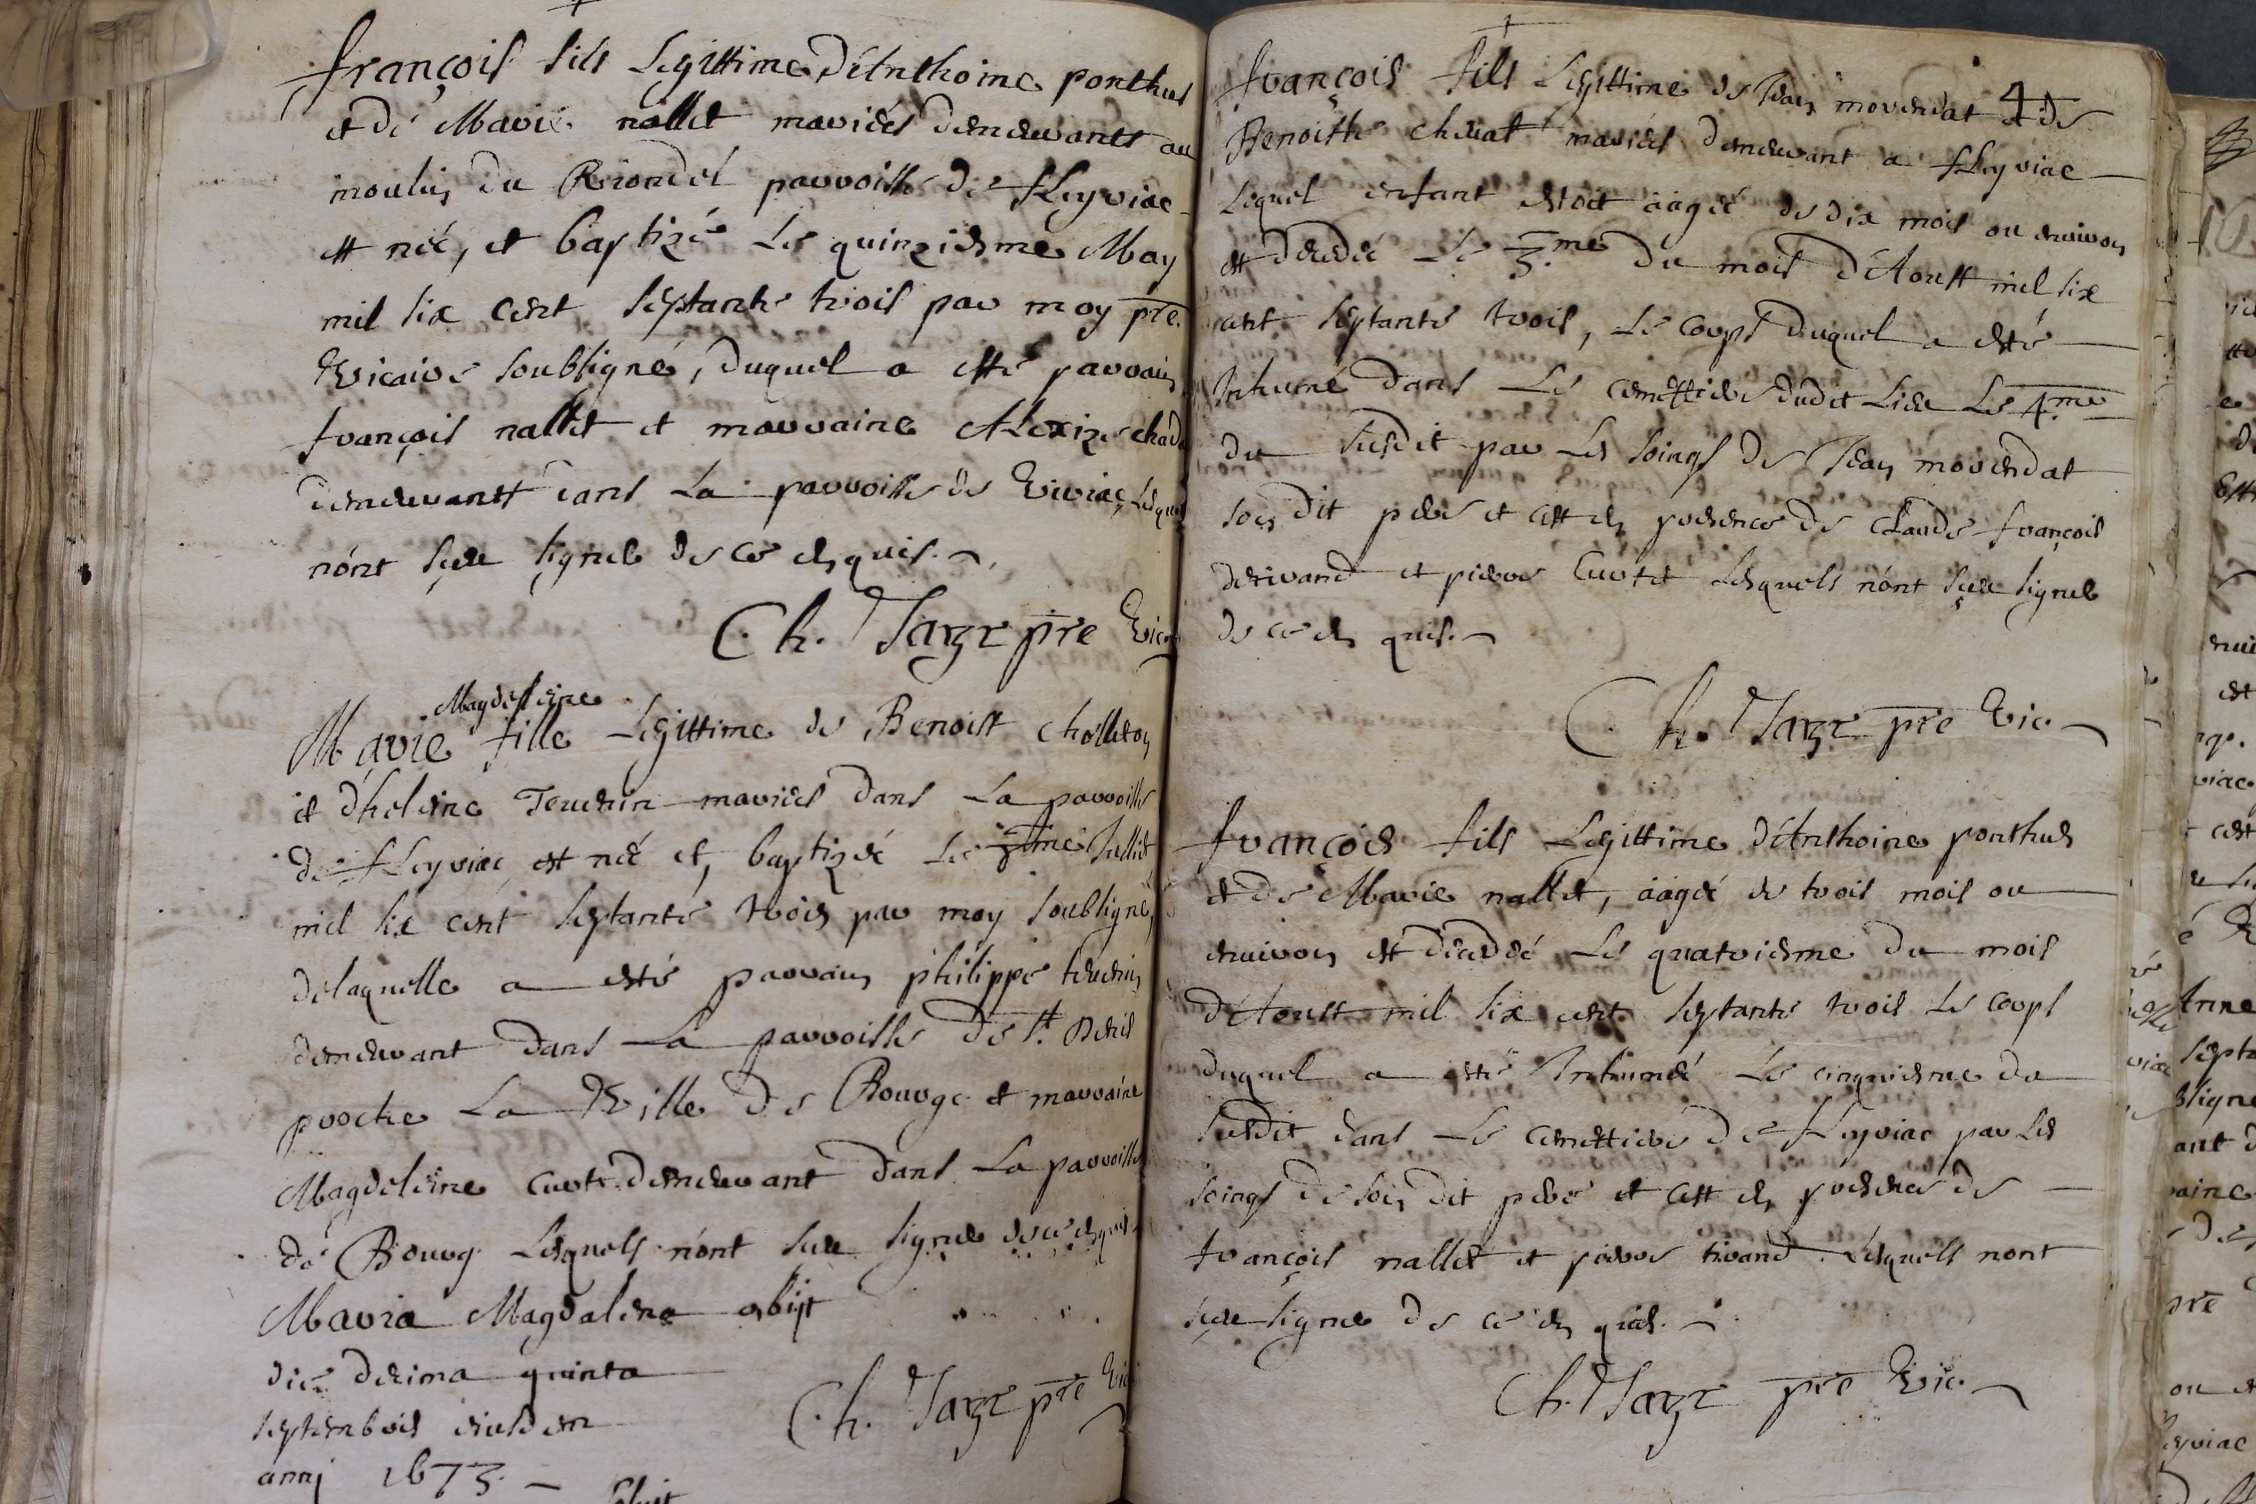 françois fils Legittime d'Anthoine ponthus
et dé Marie nallet mariés demeurants au
moulin du Riondel parroisse de fleyriac
est néé, et baptizé Le quinziesme May
mil six cent septante trois par moy pre.
Vicaire soubsigné, duquel a esté parrain
françois nallet et marraine Alexize
demeurantt dans La parroisse de Viriac, Lesquels
n'ont sceu signer de ce enquis.
Ch. Sarze pre Vic
Magdeleine
Marie fille Legittime de Benoist Cholleton
et d'heleine Teurnin mariés dans La parroisse
de fleyriac est néé et baptizéé Le 3me Juillet
mil six cent septante trois par moy soubsigné,
delaquelle a esté parrain philippe teurnin
demeurant dans La parroisse de st. Denis
proche La Ville de Bourge et marraine
Magdeleine Curte demeurant dans La parroisse
de Bourg Lesquels n'ont sceu signer de ce enquis
Maria Magdalena obijt
die decima quinta
septembris eiusdem
anni 1673.
Ch. Sarze pre Vic
françois fils Legittime de Jean morendat & de
Benoiste chevat mariés demeurant a fleyriac
Lequel enfant estoit ââgéé de dix mois ou environ
est décedéé Le 3.me du mois d'Aoust mil six
cent septante trois, Le corps duquel a esté
Inhumé dans Le cemettiere dudit Lieu Le 4.me
du susdit par Les soings de Jean morendat
son dit pere et cest en presence de Claude françois
derivand et pierre Curtet Lesquels n'ont sceu signer
de ce en quis.
Ch. Sarze pre Vic
françois fils Legittime d'Anthoine ponthus
et de Marie nallet, ââgéé de trois mois ou
environ est décedéé Le quatriesme du mois
d'Aoust mil six cent septante trois Le corps
duquel a esté Inhuméé Le cinquiesme du
susdit dans Le cemettiere de fleyriac par Les
soings de son dit pere et cest en presence de
françois nallet et pierre tivand Lesquels nont
sceu signer de ce en quis.
Ch. Sarze pre Vic